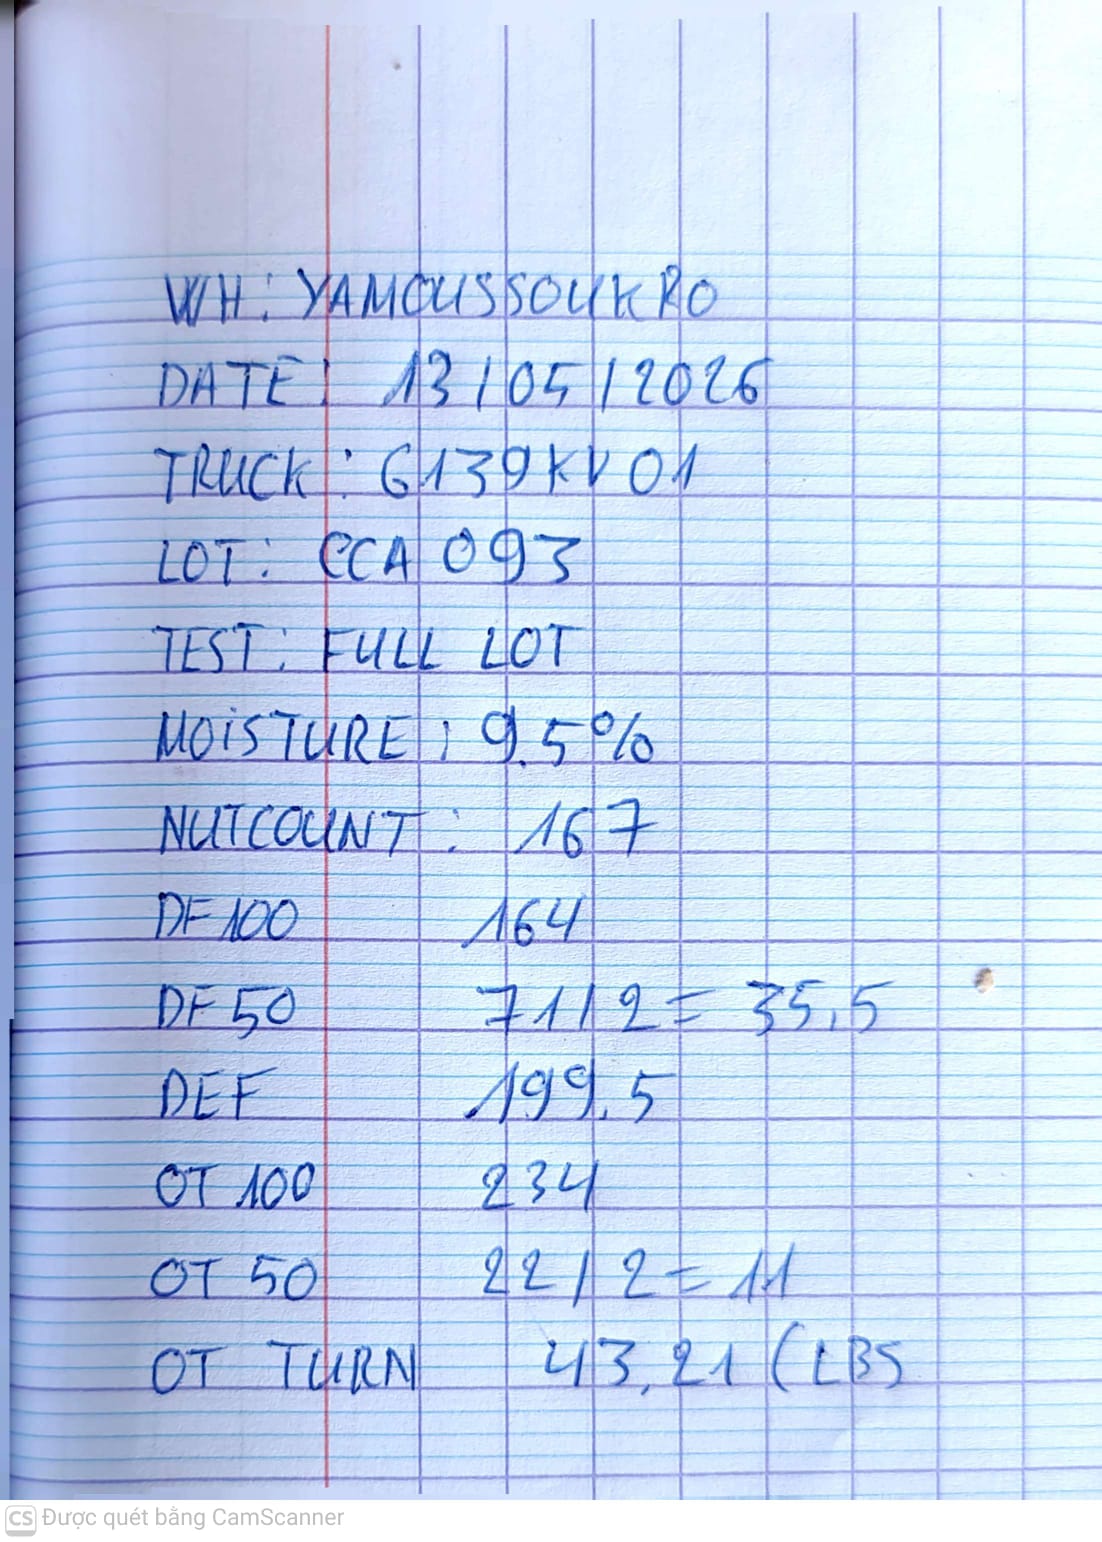 WH: YAMOUSSOUKRO
DATE: 13/05/2026
TRUCK: 6139KV01
LOT: CCA 093
TEST: FULL LOT
MOiSTURE: 9.5%
NUTCOUNT: 167
DF100 164
DF50 71/2 = 35,5
DEF 199.5
OT 100 234
OT 50 22/2 = 11
OT TURN 43,21 (LBS
CS Được quét bằng CamScanner